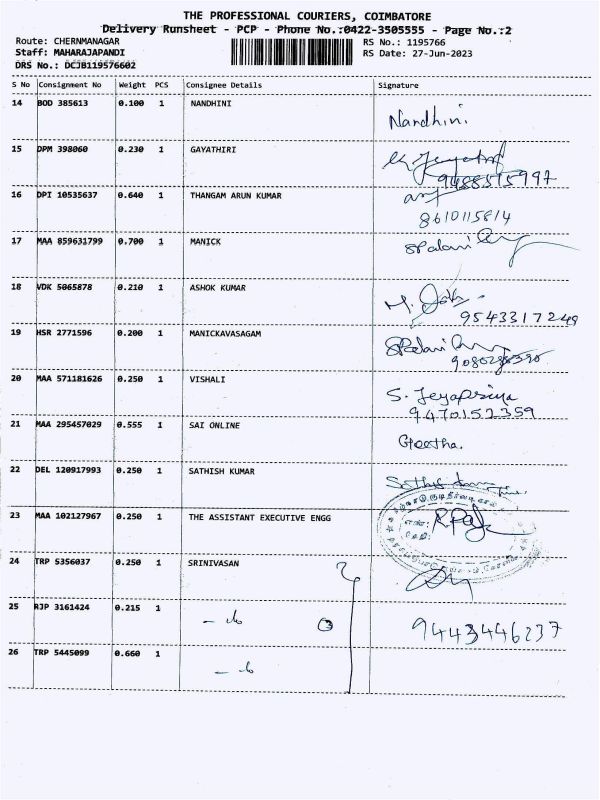 THE PROFESSIONAL COURIERS, COIMBATORE
Delivery Runsheet - PCP - Phone No.:0422-3505555 - Page No.:2
Route: CHERNMANAGAR RS No.: 1195766
Staff: MAHARAJAPANDI RS Date: 27-Jun-2023
DRS No.: DCJB119576602
S No Consignment No Weight PCS Consignee Details Signature
14 BOD 385613 0.100 1 NANDHINI Nandhini
15 DPM 398060 0.230 1 GAYATHIRI
9488515997
16 DPI 10535637 0.640 1 THANGAM ARUN KUMAR
8610115814
17 MAA 859631799 0.700 1 MANICK
18 VDK 5065878 0.210 1 ASHOK KUMAR
9543317249
19 HSR 2771596 0.200 1 MANICKAVASAGAM
20 MAA 571181626 0.250 1 VISHALI S. Jeyapriya
9470152359
21 MAA 295457029 0.555 1 SAI ONLINE Geetha.
22 DEL 120917993 0.250 1 SATHISH KUMAR
23 MAA 102127967 0.250 1 THE ASSISTANT EXECUTIVE ENGG
24 TRP 5356037 0.250 1 SRINIVASAN
25 RJP 3161424 0.215 1 9443446237
26 TRP 5445099 0.660 1